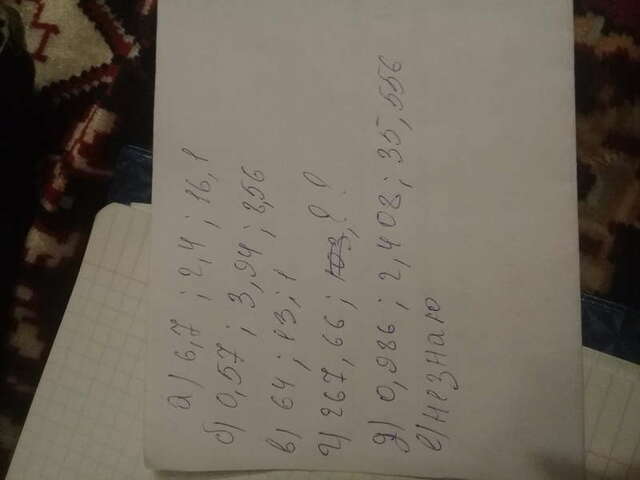 а) 6,7 ; 2,4 ; 16,1
б) 0,57 ; 3,94 ; 2,56
в) 64 ; 13 ; 1
г) 267,66 ; ? ?
д) 0,986 ; 2,408 ; 35,556
е) незнаю